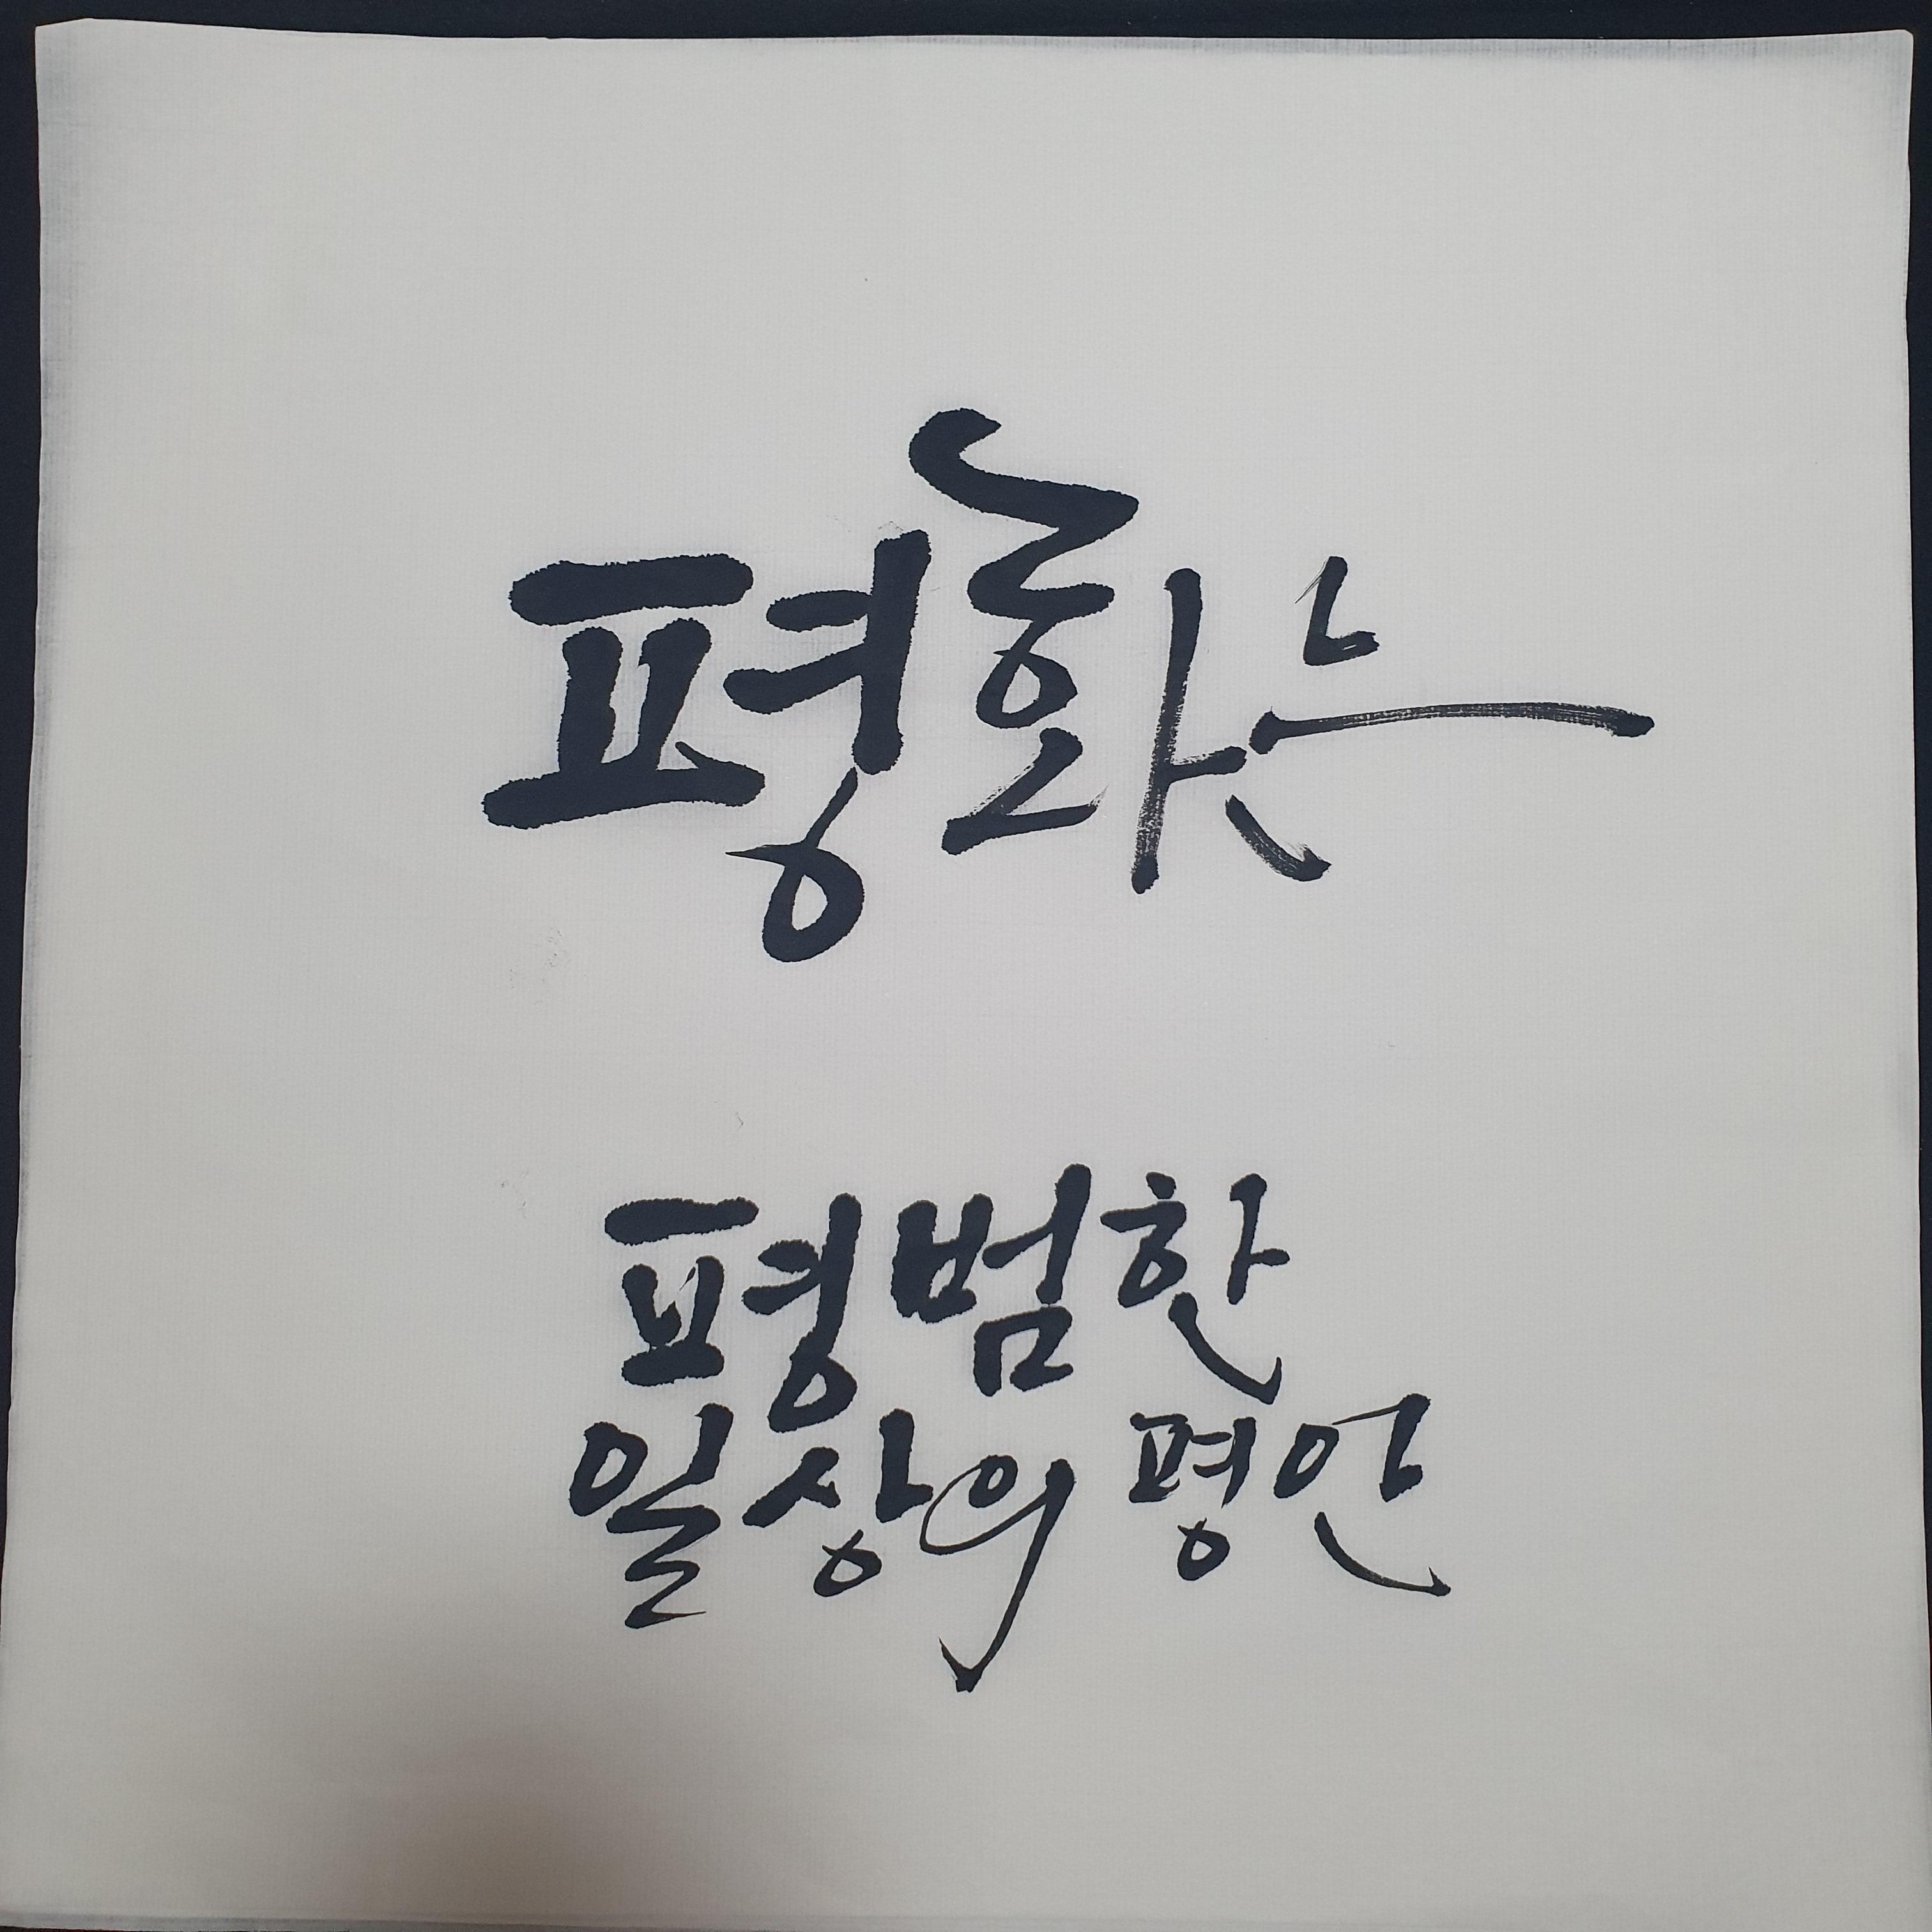 평화는
평범한
일상의 평안